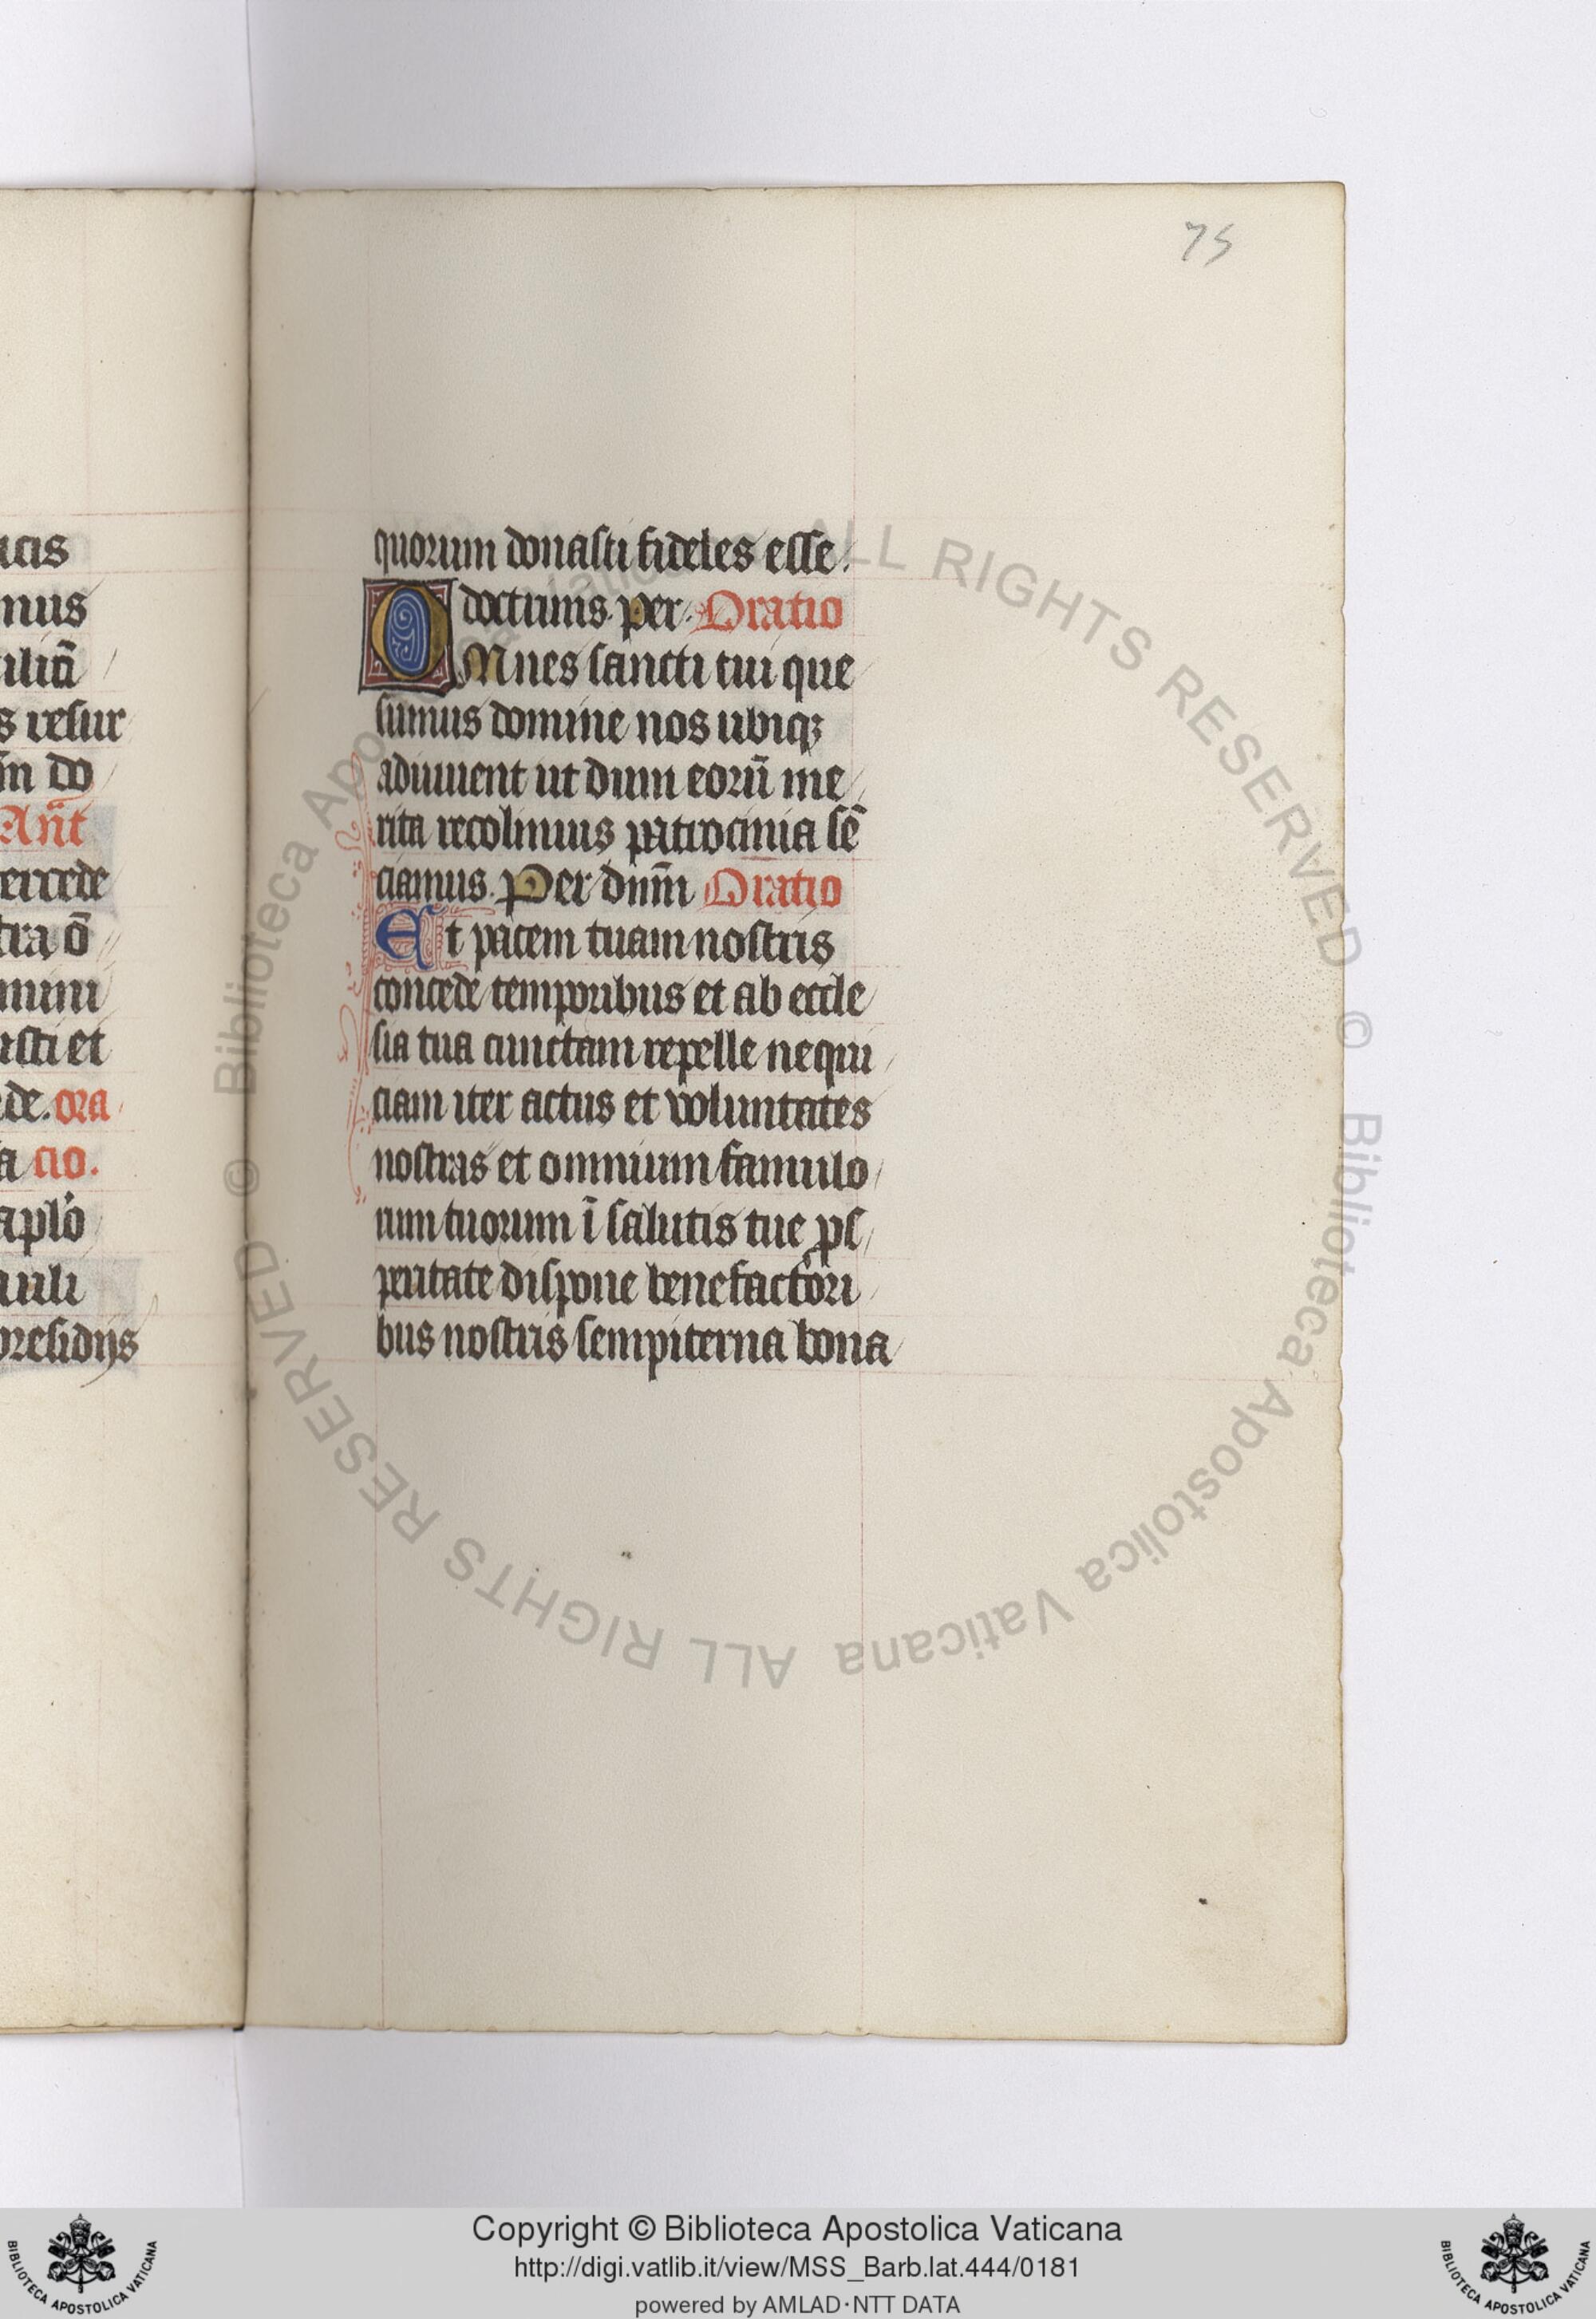 ucis
mus
s resur
m do
Añt
ercede
tra õ
mini
usti et
de. ora
a cio.
aplo
auli
presidijs
75
quorum donasti fideles esse.
doctrinis. per. Oratio
OMnes sancti tui que
sumus domine nos ubiqꝫ
adiuuent ut dum eorũ me
rita recolimus patrocinia sẽ
ciamus. Per dnm̃ Oratio
Et pacem tuam nostris
concede temporibus et ab eccle
sia tua cunctam repelle nequi
ciam iter actus et voluntates
nostras et omnium famulo
rum tuorum ĩ salutis tue ꝓs
peritate dispone benefactori
bus nostris sempiterna bona
© Biblioteca Apostolica Vaticana ALL RIGHTS RESERVED © Biblioteca Apostolica Vaticana ALL RIGHTS RESERVED
Copyright © Biblioteca Apostolica Vaticana
http://digi.vatlib.it/view/MSS_Barb.lat.444/0181
powered by AMLAD·NTT DATA
BIBLIOTECA APOSTOLICA VATICANA
BIBLIOTECA APOSTOLICA VATICANA